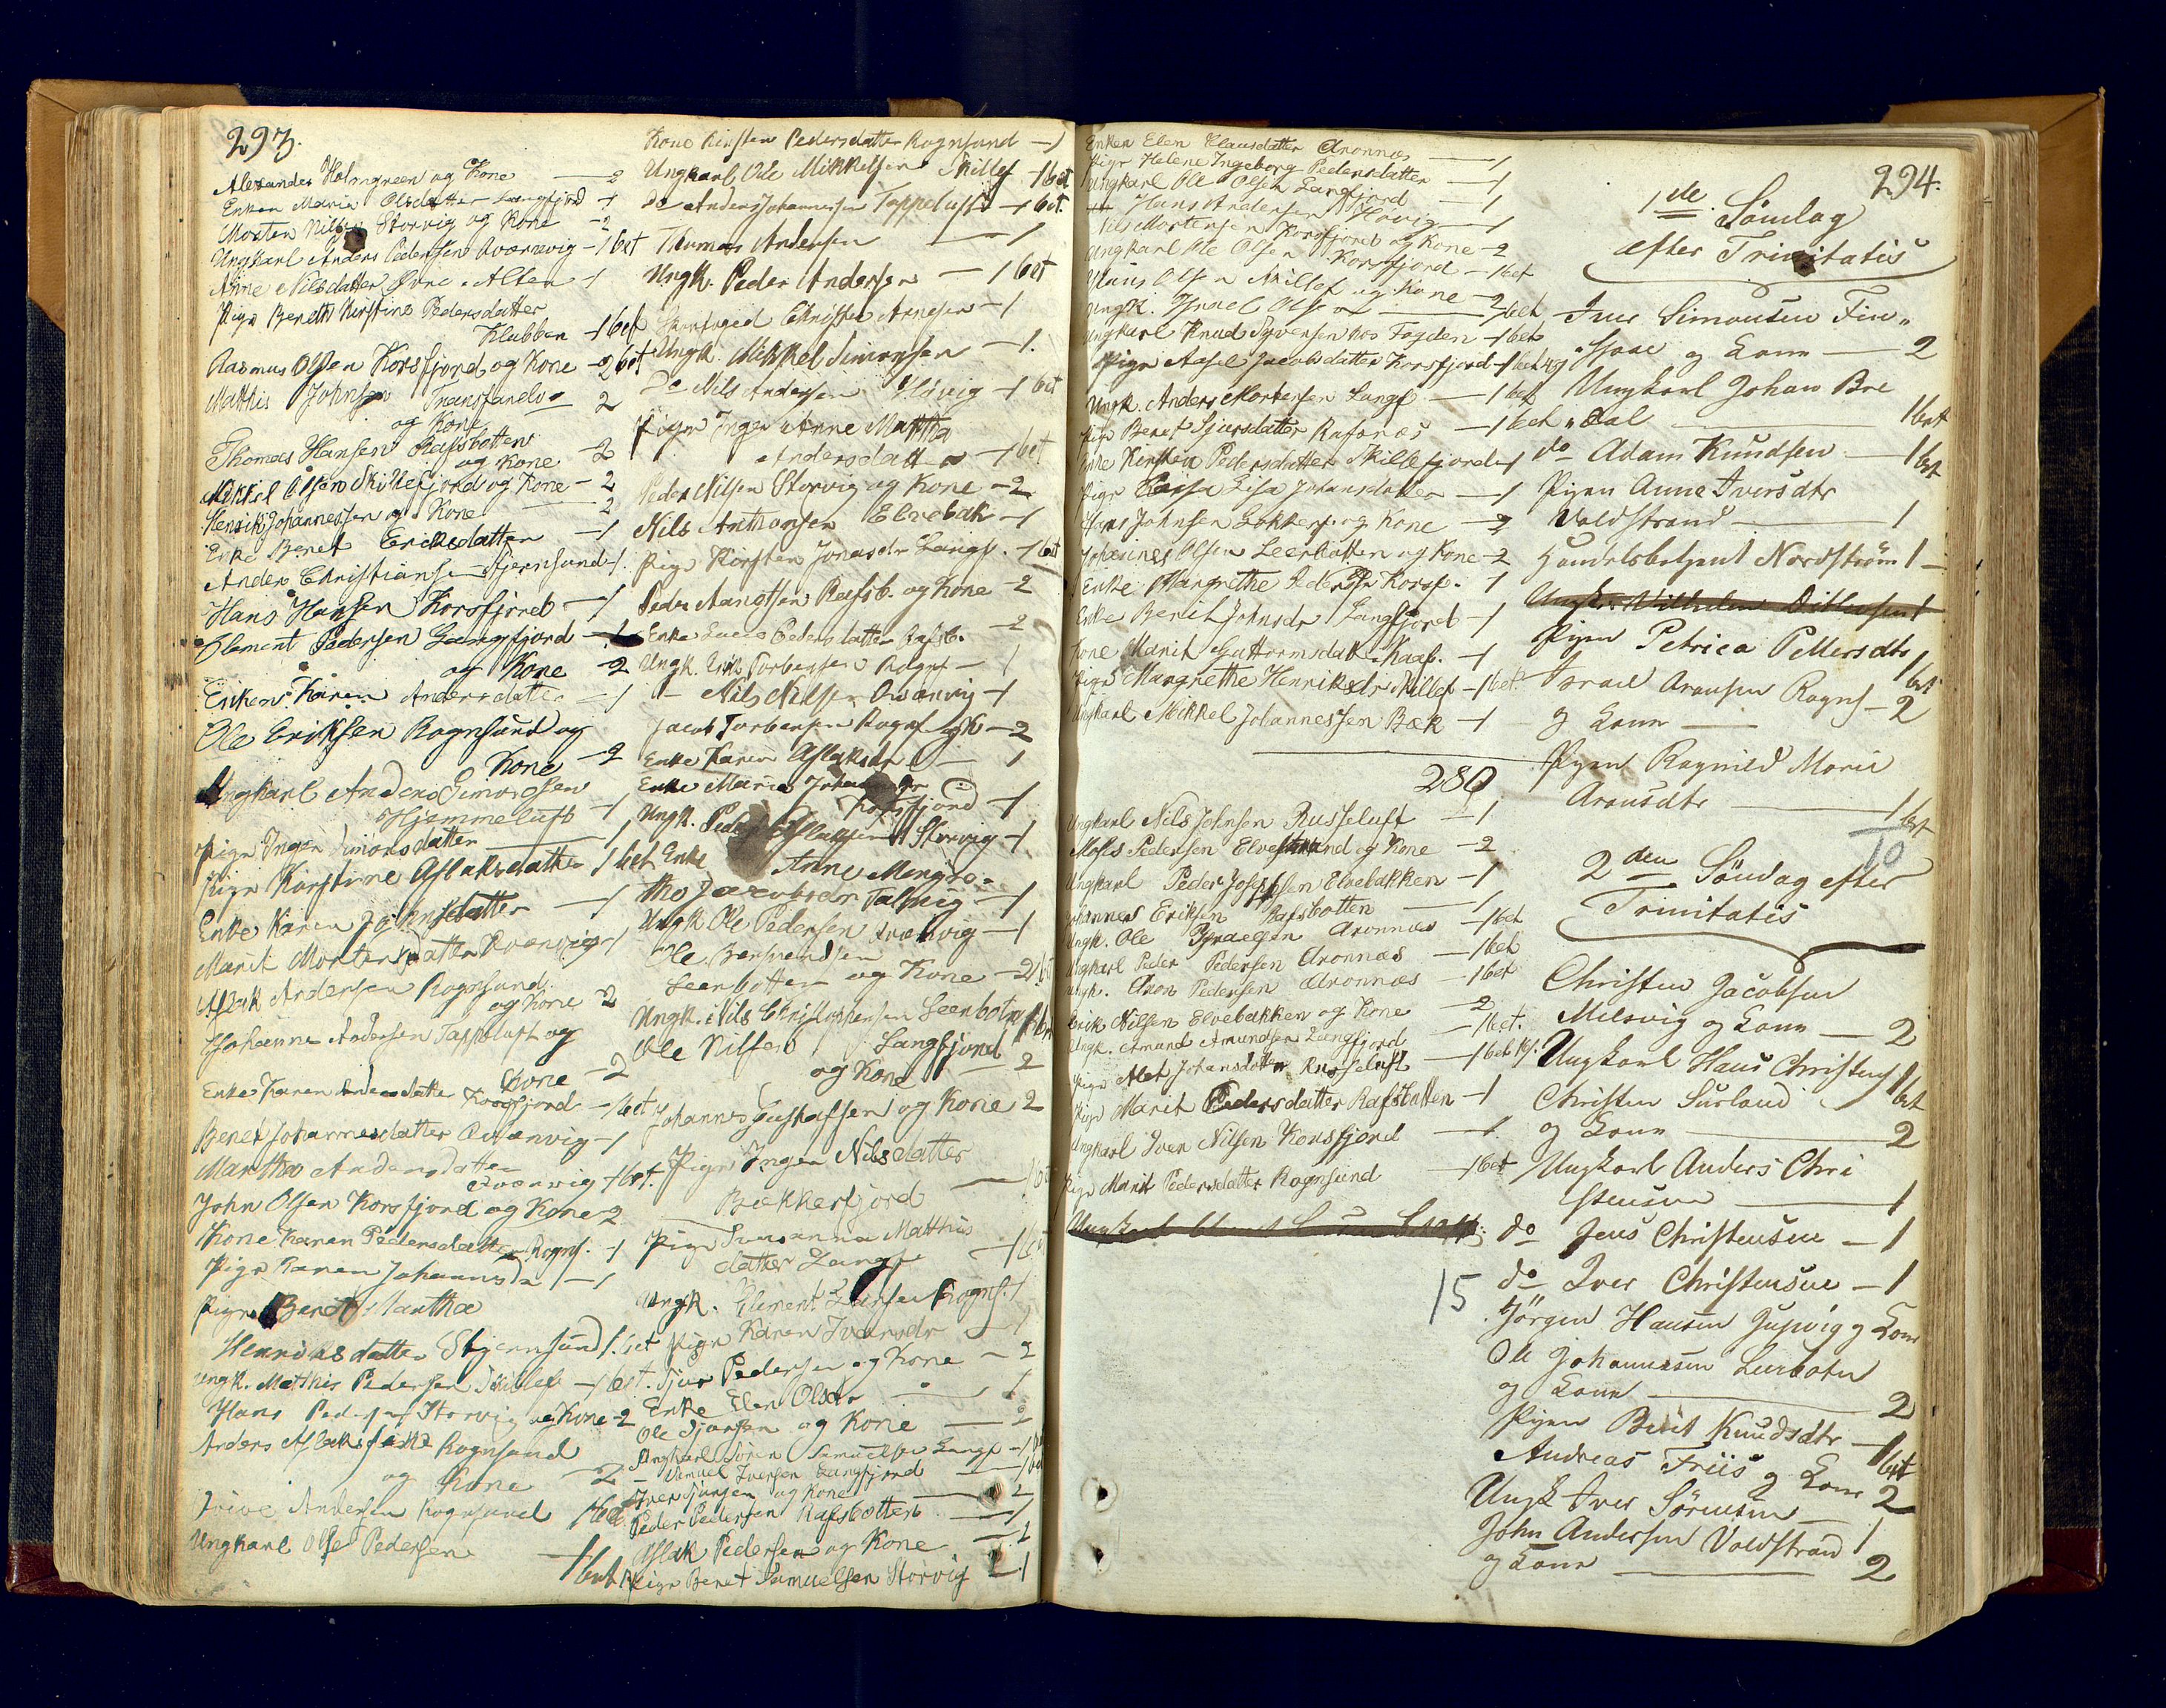 293.
Alexander Holmgreen og Kone — 2
Enken Maria Olsdatter Langfjord -1
Morten Nilsen Storvig og Kone - 2
Ungkarl Anders Pedersen Qvænvig - 1 bet
Anne Nilsdatter Øvre Alten - 1
Pige Bereth Kirstine Pedersdatter
Klubben - 1 bet
Rasmus Olsen Korsfjord og Kone - 2 bet
Matthis Johnsen Transfandv — 2
og Kone
Thomas Hansen Rafsbotten
og Kone - 2
Mikkel Olsen Skillefjord og Kone - 2
Henrik Johannessen og Kone — 2
Enke Beret Ericksdatter — 1
Anders Christiansen Stjernsund - 1.
Hans Hansen Korsfjord — 1
Clement Pedersen Langfjord
og Kone - 2
Enken Karen Andersdatter — 1
Ole Eriksen Rognsund og
Kone - 2
Ungkarl Anders Simonsen
Hjemmeluft - 1
Pige Inger Simonsdatter — 1
Pige Kirstine Aslaksdatter 1 bet
Enke Karen Johnsdatter — 1
Marit Mortensdatter Qvænvig - 1
Aslak Andersen Rognsund
og Kone - 2
Johannes Andersen Tappeluft og
Kone - 2
Enke Karen Andersdatter Korsfjord - 1 bet
Beret Johannesdatter Qvænvig - 1
Marthe Andersdatter
Qvænvig - 1 bet.
John Olsen Korsfjord og Kone - 2
Kone Karen Pedersdatter Rogns. - 1
Pige Karen Johannsdr — 1
Pige Beret Martha
Henriksdatter Stjernsund 1. bet
Ungk. Mathis Pedersen Skillef - 1 bet.
Hans Pedersen Storvig og Kone - 2
Anders Aslaksen Rognsund
og Kone — 2
Andersen Rognsund 1 bet
Ungkarl Ole Pedersen — 1 bet
Kone Kirsten Pedersdatter Rognsund - 1
Ungkarl Ole Mikkelsen Skillef - 1 bet
Do Anders Johannesen Tappeluft - 1 bet.
Thomas Andersen — 1
Ungk. Peder Andersen — 1 bet
Christen Arnesen - 1
Ungk. Mikkel Simonsen — 1.
Do Nils Andersen - 1 bet
Pige Inger Anne Martha
Andersdatter - 1 bet
Peder Nilsen Storvig og Kone - 2
Nils Anthonsen Elvebak - 1
Pige Kirsten Jonasdr Langf. - 1 bet
Peder Rafsb. og Kone - 2
Enke Lucie Pedersdatter Rafsb. - 2
Ungk. Erik Torbersen Rognf - 1
- Nils Nilsen Qvænvig - 1
Jacob Torbersen Rognf. og K - 2
Enke Karen Aslaksdr — 1
Enke Maria
Korsfjord - 1
Ungk. Peder Storvig - 1
Enke Anne Margre-
the Jacobsdr Talvig - 1
Ungk. Ole Pedersen Qvænvig - 1
Ole Bersvendsen
Leerbotten og Kone - 2 bet
Ungk. Nils Christophersen Leerbotn 1 bet
Ole Nilsen Langfjord
og Kone — 2
Johannes Gustafsen og Kone 2
Pige Inger Nilsdatter
Bækkerfjord — 1 bet
Pige Susanna Matthis
datter Langf — 1 bet
Ungk. Clement Larsen Rogns. 1
Pige Karen Iversdr — 1
Siur Pedersen og Kone — 2
Enke Elen Olsdr — 1
Ole Sjursen og Kone — 2
Ungkarl Sören Samuelsen Langf - 1 bet
- Samuel Iversen Langfjord — 1 bet
Iver Sjursen og Kone — 2
Peder Pedersen Rafsbotten — 1
Aslak Pedersen og Kone — 2
Pige Beret Samuelsen Storvig - 1
294.
Enken Elen Klausdatter Aronnæs — 1
Pige Helene Ingeborg Pedersdatter — 1
Ungkarl Ole Olsen Langfjord — 1
Hans Andersen Storvig — 1
Nils Mortensen Korsfjord og Kone - 2
Ungkarl Ole Olsen Korsfjord - 1 bet
Hans Olsen Skillef og Kone - 2
Ungk. Israel Olsen — 1 bet
Ungkarl Knud Syvensen hos Fogden - 1 bet
Pige Aasel Jacobsdatter Korsfjord - 1 bet
Ungk. Anders Mortensen Langf — 1 bet
Pige Beret Sjursdatter Rafsnæs — 1 bet
Enke Kirsten Pedersdatter Skillefjord - 1
Pige Lisa Johansdatter — 1
Hans Johnsen og Kone — 2
Johannes Olsen Leerbotten og Kone - 2
Enke Margrethe Pedersdr Korsf. - 1
Enke Berit Johnsdr Langfjord - 1
Kone Marit Guttormsdatt. Kaaf. - 1
Pige Margrethe Henriksdr Skillef - 1 bet.
Ungkarl Mikkel Johannessen Bæk - 1
280
Ungkarl Nils Johnsen Russeluft — 1
Moses Pedersen Elvestrand og Kone - 2
Ungkarl Peder Josephsen Elvebakken - 1
Johannes Eriksen Rafsbotten — 1
Ungk. Ole Israelsen Aronnæs - 1 bet
Ungkarl Peder Pedersen Aronnæs — 1 bet
Ungk. Aron Pedersen Aronnæs - 1 bet
Erik Nilsen Elvebakken og Kone — 2
Ungk. Amund Amundsen Langfjord — 1 bet.
Pige Alet Johansdatter Russeluft — 1 bet
Pige Marit Pedersdatter Rafsbotten - 1
Ungkarl Iver Nilsen Korsfjord — 1
Pige Marit Pedersdatter Rognsund — 1 bet
15
1de Söndag
efter Trinitatis
Iver Simonsen Fin„
og Kone — 2
Ungkarl Johan Bre
„dal — 1 bet
do Adam Knudsen — 1 bet
Pigen Anne Iversdtr
Voldstrand — 1
Handelsbetjent Nordström 1 —
Ungk. Vilhelm Ditlensen 1
Pigen Petrica Pettersdtr 1 bet
Israel Aronsen Rogns — 2
og Kone —
Pigen Ragnild Marie
Aronsdtr — 1 bet
10
2den Söndag efter
Trinitatis
Christen Jacobsen
Milsvig og Kone — 2
Ungkarl Hans Christens 1 bet
Christen Surland
og Kone — 2
Ungkarl Anders Chri
stensen — 1
do Jens Christensen — 1
do Iver Christensen — 1
Jörgen Hansen og Kone
Ole Johannesen Leerbotn
og Kone — 2
Pigen Berit Knudsdtr — 1 bet
Andreas Friis og Kone 2
Ungk Iver Sörensen — 1
John Andersen Voldstrand
og Kone — 2